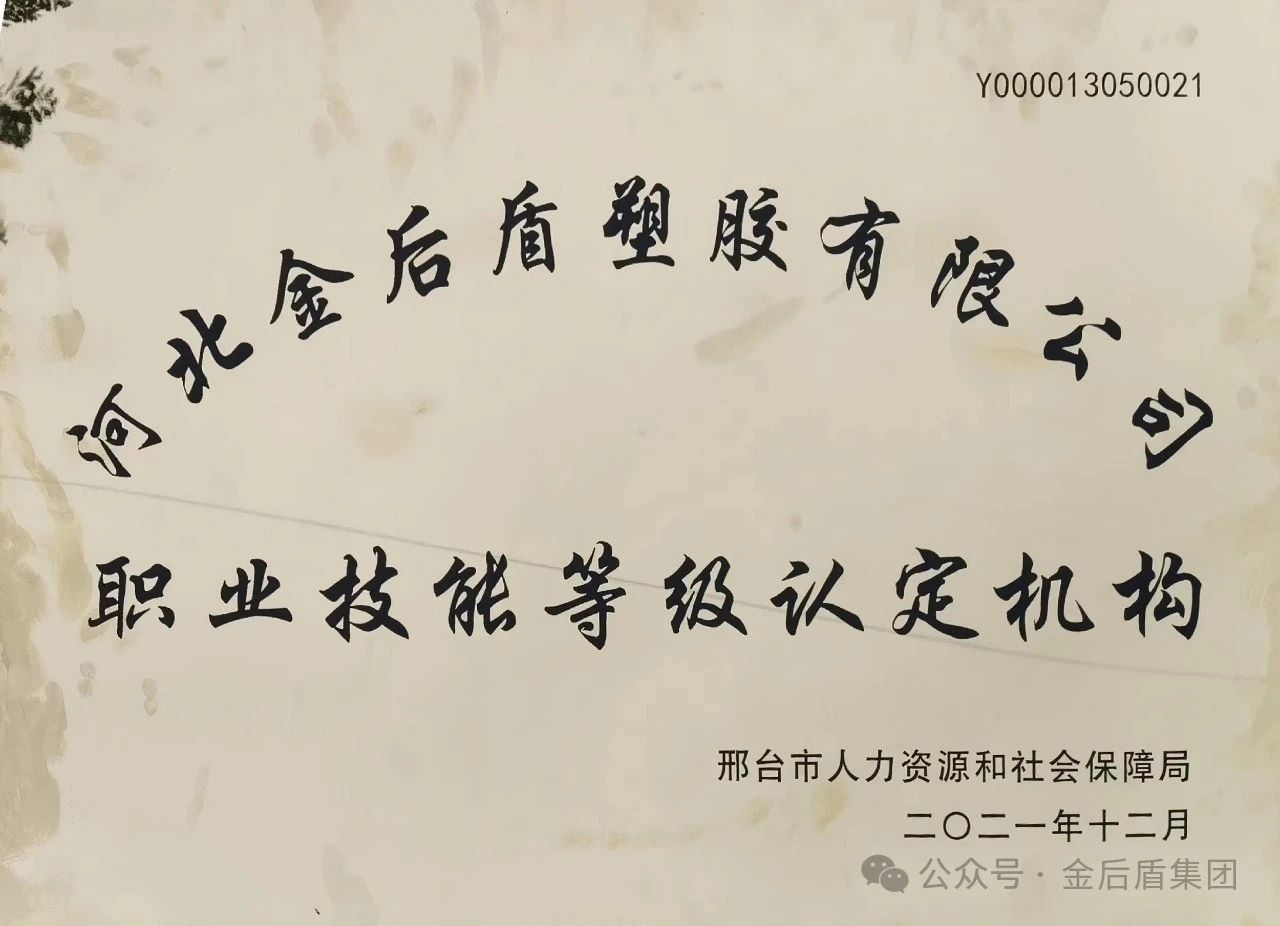 Y000013050021
河北金后盾塑胶有限公司
职业技能等级认定机构
邢台市人力资源和社会保障局
二〇二一年十二月
公众号·金后盾集团